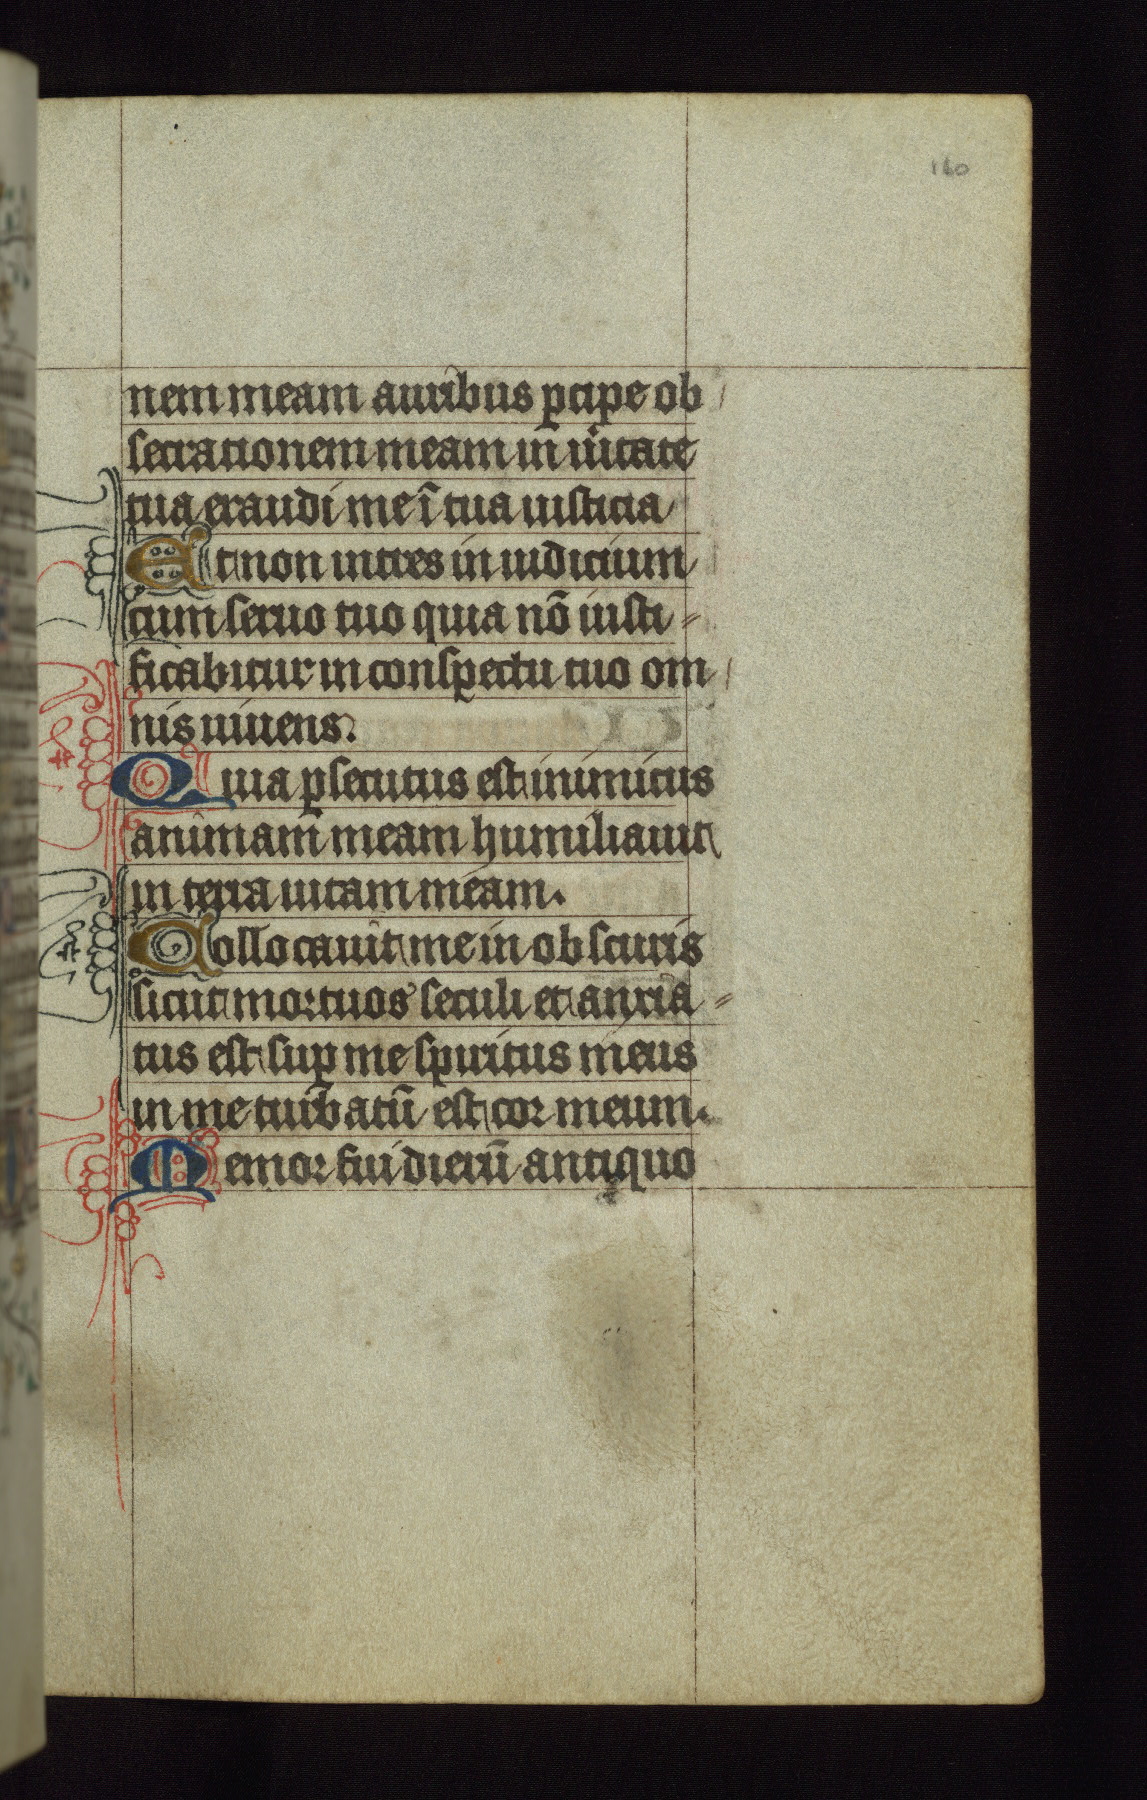 160
nem meam auribus ꝑcipe ob
secrationem meam in uĩtate
tua exaudi me ĩ tua iusticia
Et non intres in iudicium
cum seruo tuo quia nõ iusti-
ficabitur in conspectu tuo om
nis uiuens.
Quia ꝑsecutus est inimicus
animam meam humiliauit
in terra uitam meam.
Collocauit me in obscuris
sicut mortuos seculi et anxia-
tus est suꝑ me spiritus meus
in me turbatũ est cor meum.
Memor fui dierũ antiquo